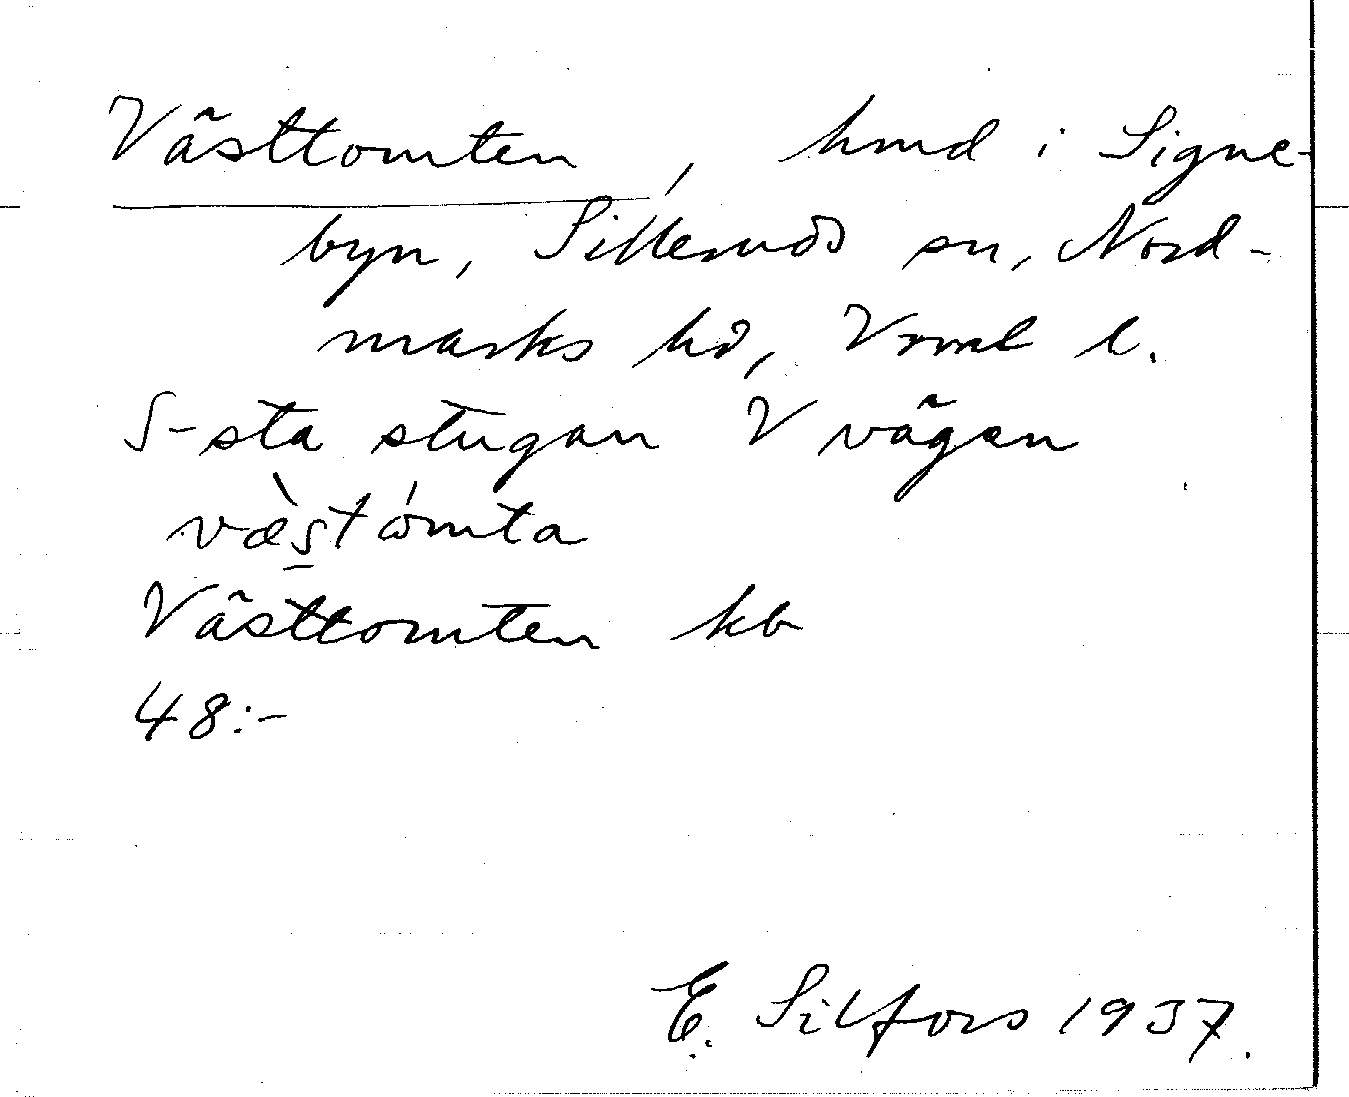 Västtomten, hmd i Signe-
byn, Silleruds sn, Nord-
marks hd, Vrml l.
S-sta stugan V vägen
væ̀stómta
Västtomten kb
48:-
E. Silfors 1937.